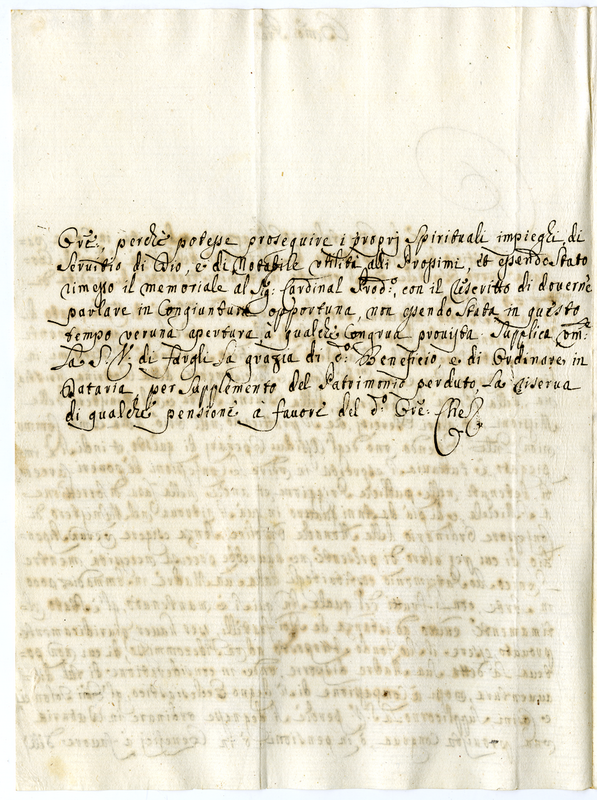 Ore:, perche potesse proseguire i proprj Spirituali impieghi di
Servitio di Dio, e di Notabile utilità alli Prossimi, et essendo Stato
rimesso il memoriale al Sig: Cardinal Prod:º, con il Riscritto di doverne
parlare in Congiuntura opportuna, non essendo Stata in questo
tempo veruna apertura à qualche Congrua provista. Supplica
La S. V. di fargli La grazia di d:º Beneficio, e di Ordinare in
Dataria per Supplemento del Patrimonio perduto La Riserva
di qualche pensione à favore del d:º Ore: Che